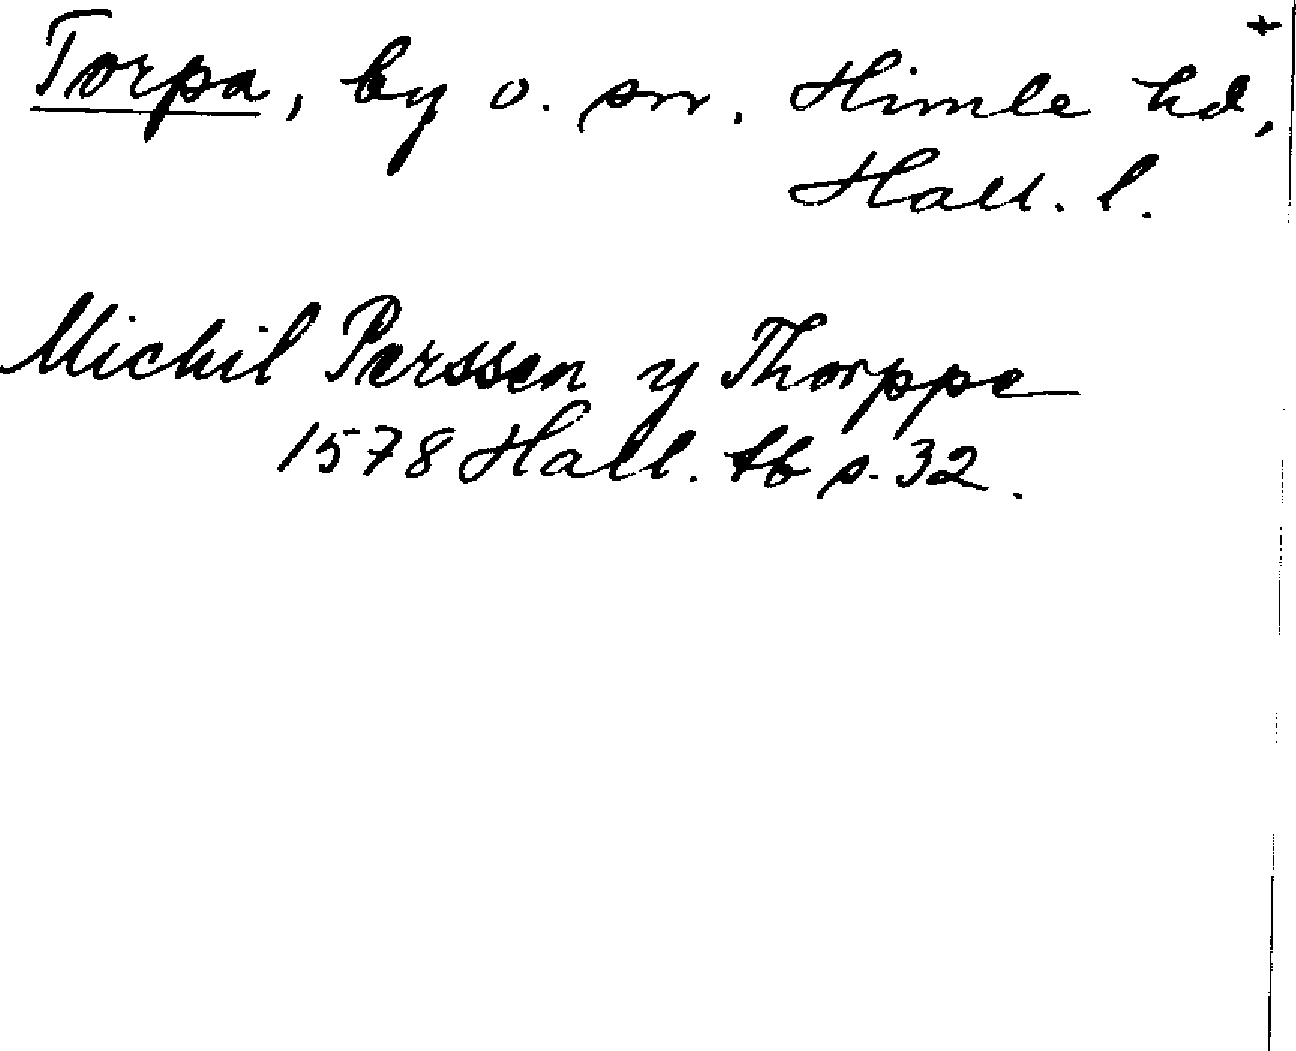 Torpa, by o. sn. Himle hd, +
Hall. l.
Michil Perssen y Thorppe
1578 Hall. tb s. 32.